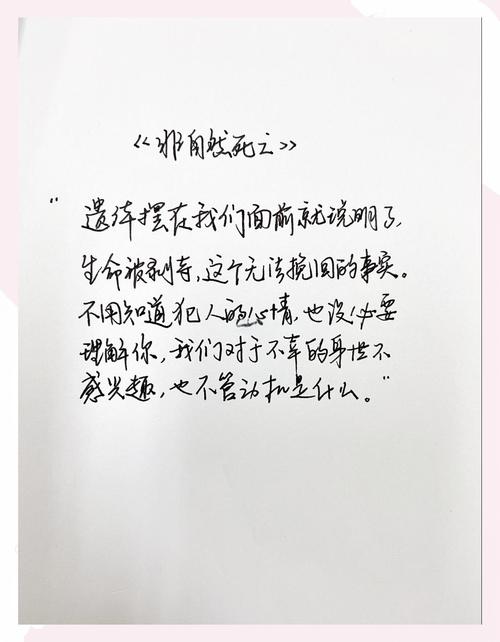 《非自然死亡》
“遗体摆在我们面前就说明了,
生命被剥夺,这个无法挽回的事实。
不用知道犯人的心情,也没必要
理解你,我们对于不幸的身世不
感兴趣,也不管动机是什么。”